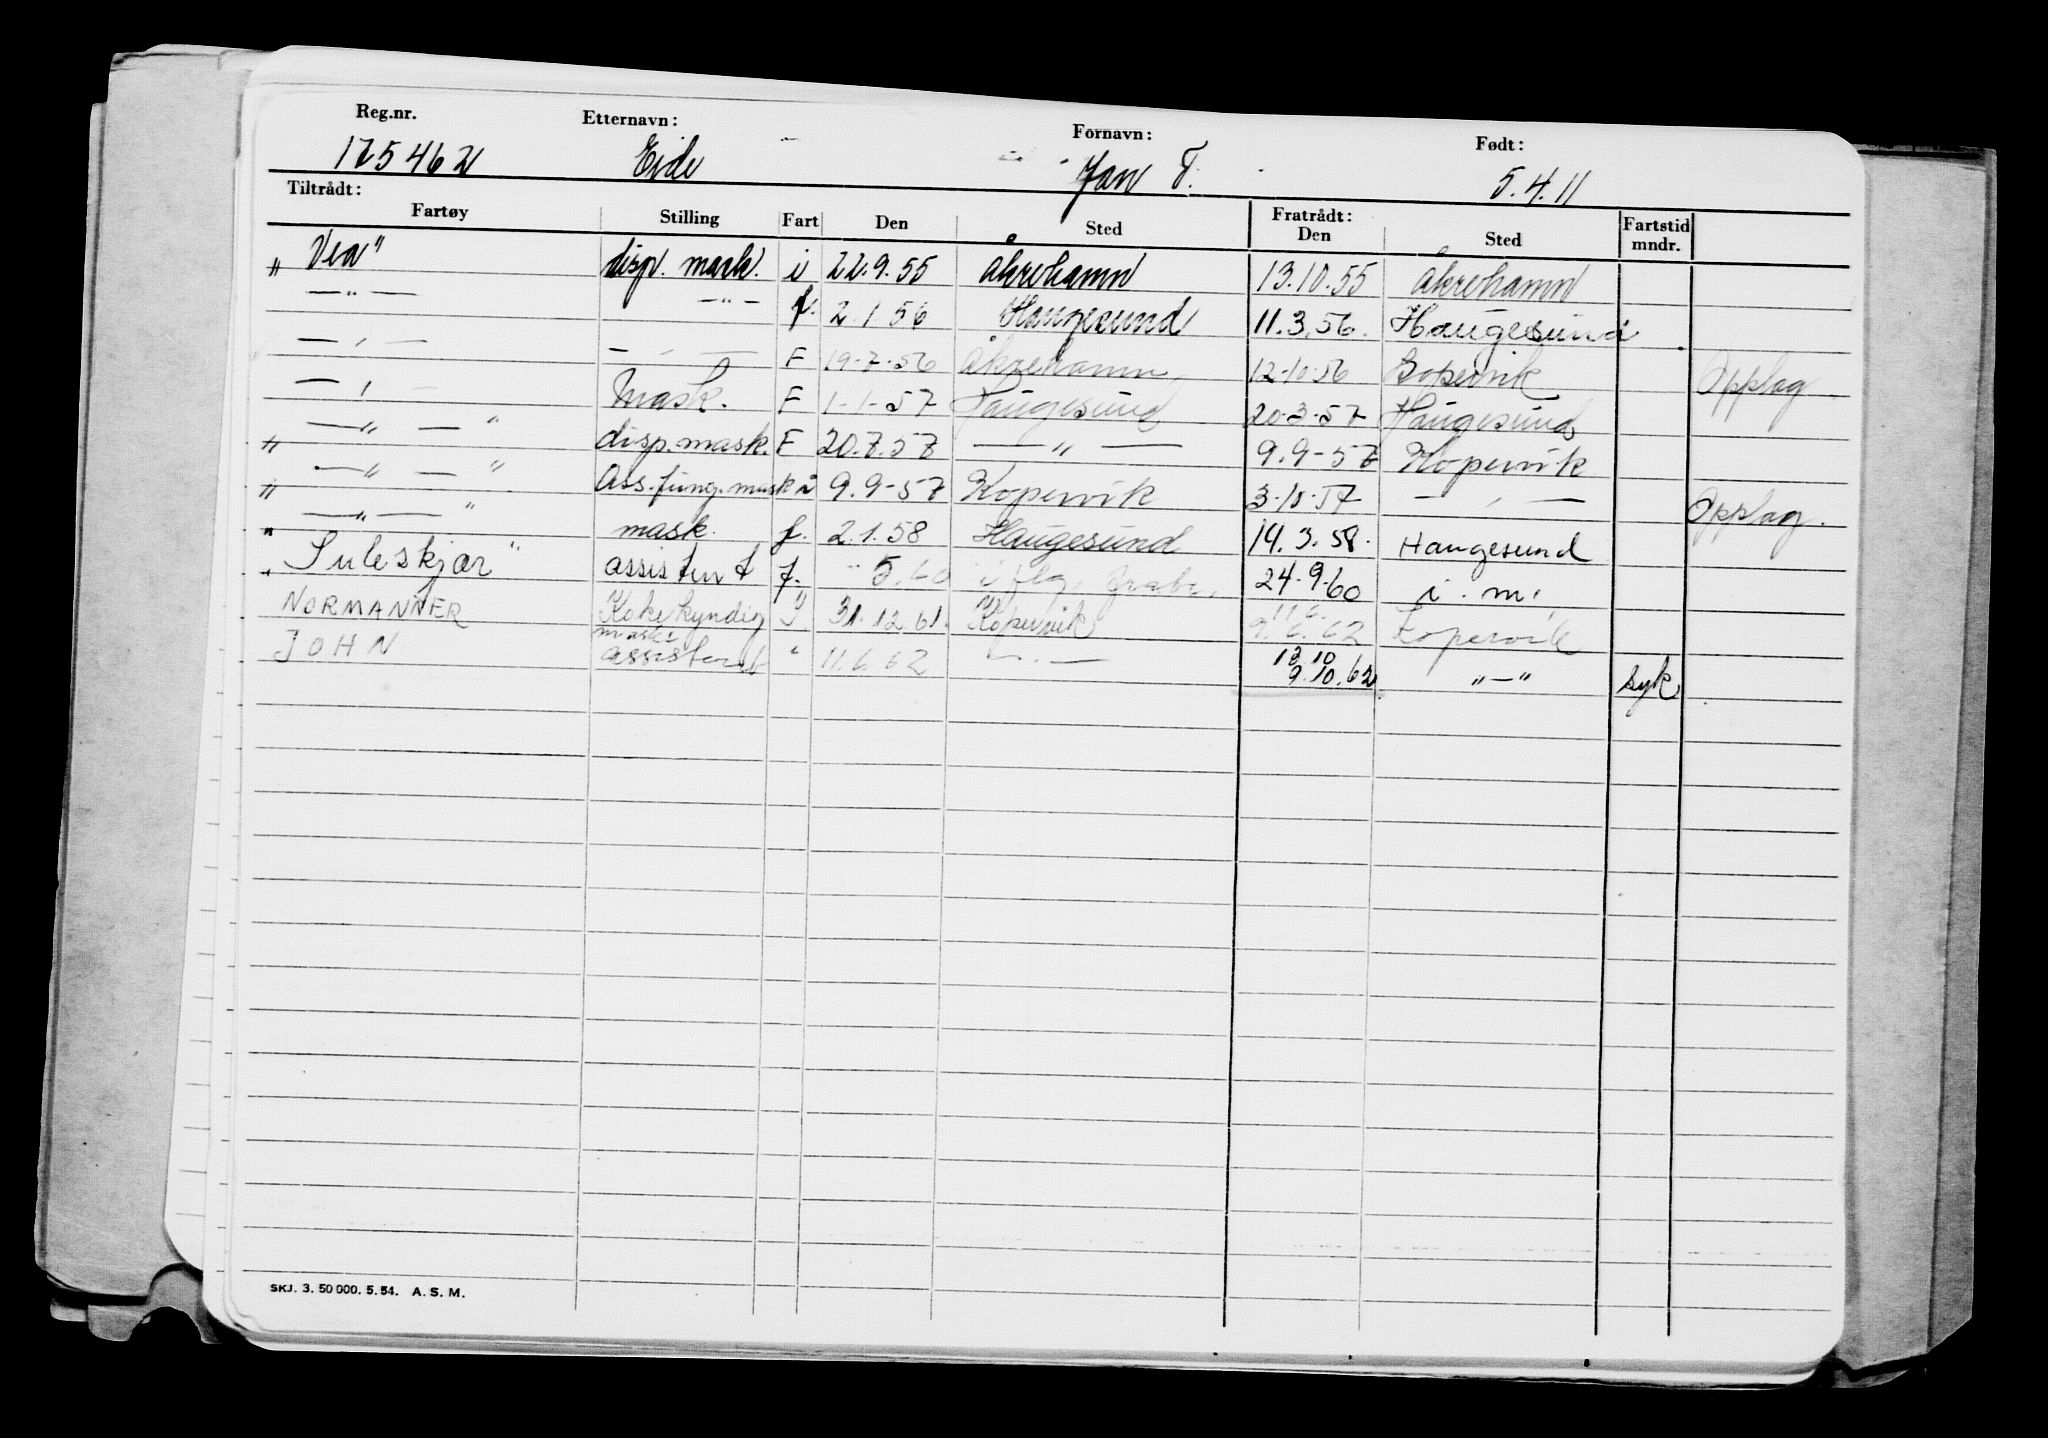 Reg.nr. Etternavn: Fornavn: Født:
175462 Eide Jan T. 5.4.11
Tiltrådt: Fratrådt:
Fartøy Stilling Fart Den Sted Den Sted Fartstid mndr.
"Vea" disp. mask. i 22.9.55 Åkrehamn 13.10.55 Åkrehamn
—"— —"— f. 2.1.56 Haugesund 11.3.56. Haugesund
—,— —,— F 19-7-56 Åkrehamn 12-10-56 Kopervik Opplag
—,— Mask. F 1-1-57 Haugesund 20-3-57 Haugesund
"—"—" disp. mask. F 20.7.57 —"— 9.9-57 Kopervik
"—"—" Ass. fung. mask i 9.9-57 Kopervik 3-10-57 —,— Opplag.
"—"—" mask. f. 2.1.58 Haugesund 14.3.58. Haugesund
"Suleskjær" assistent f. 5.60 i flg. 24-9-60 i. m.
NORMANNER Kokekyndig I 31.12.61. Kopervik 11.6. 9.6.62 Kopervik
JOHN mask. assistent " 11.6.62 —.— 13.10 9.10.62 "—" syk
SKJ. 3. 50 000. 5. 54. A. S. M.